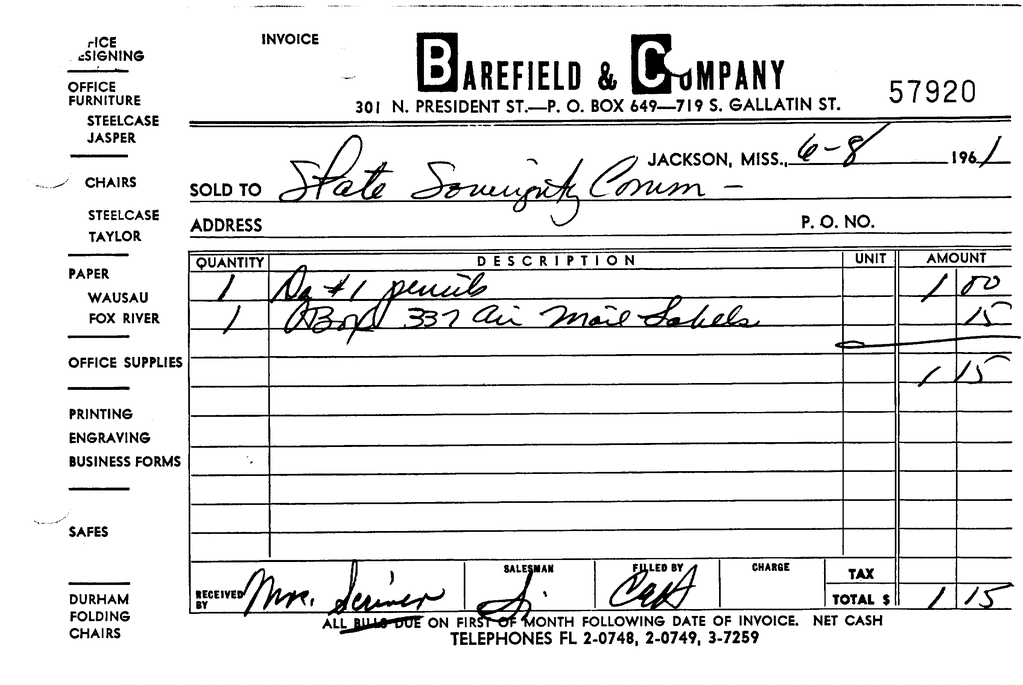 INVOICE
BAREFIELD & COMPANY
301 N. PRESIDENT ST.—P. O. BOX 649—719 S. GALLATIN ST.
57920
SIGNING
OFFICE
FURNITURE
STEELCASE
JASPER
CHAIRS
STEELCASE
TAYLOR
PAPER
WAUSAU
FOX RIVER
OFFICE SUPPLIES
PRINTING
ENGRAVING
BUSINESS FORMS
SAFES
DURHAM
FOLDING
CHAIRS
JACKSON, MISS., 6-8 1961
SOLD TO State Soverignity Comm -
ADDRESS P. O. NO.
QUANTITY DESCRIPTION UNIT AMOUNT
1 Dz #1 pencils 1 00
1 Box 337 Air Mail Labels 15
1 15
RECEIVED BY Mrs. Scriver SALESMAN FILLED BY CHARGE TAX
TOTAL $ 1 15
ALL BILLS DUE ON FIRST OF MONTH FOLLOWING DATE OF INVOICE. NET CASH
TELEPHONES FL 2-0748, 2-0749, 3-7259